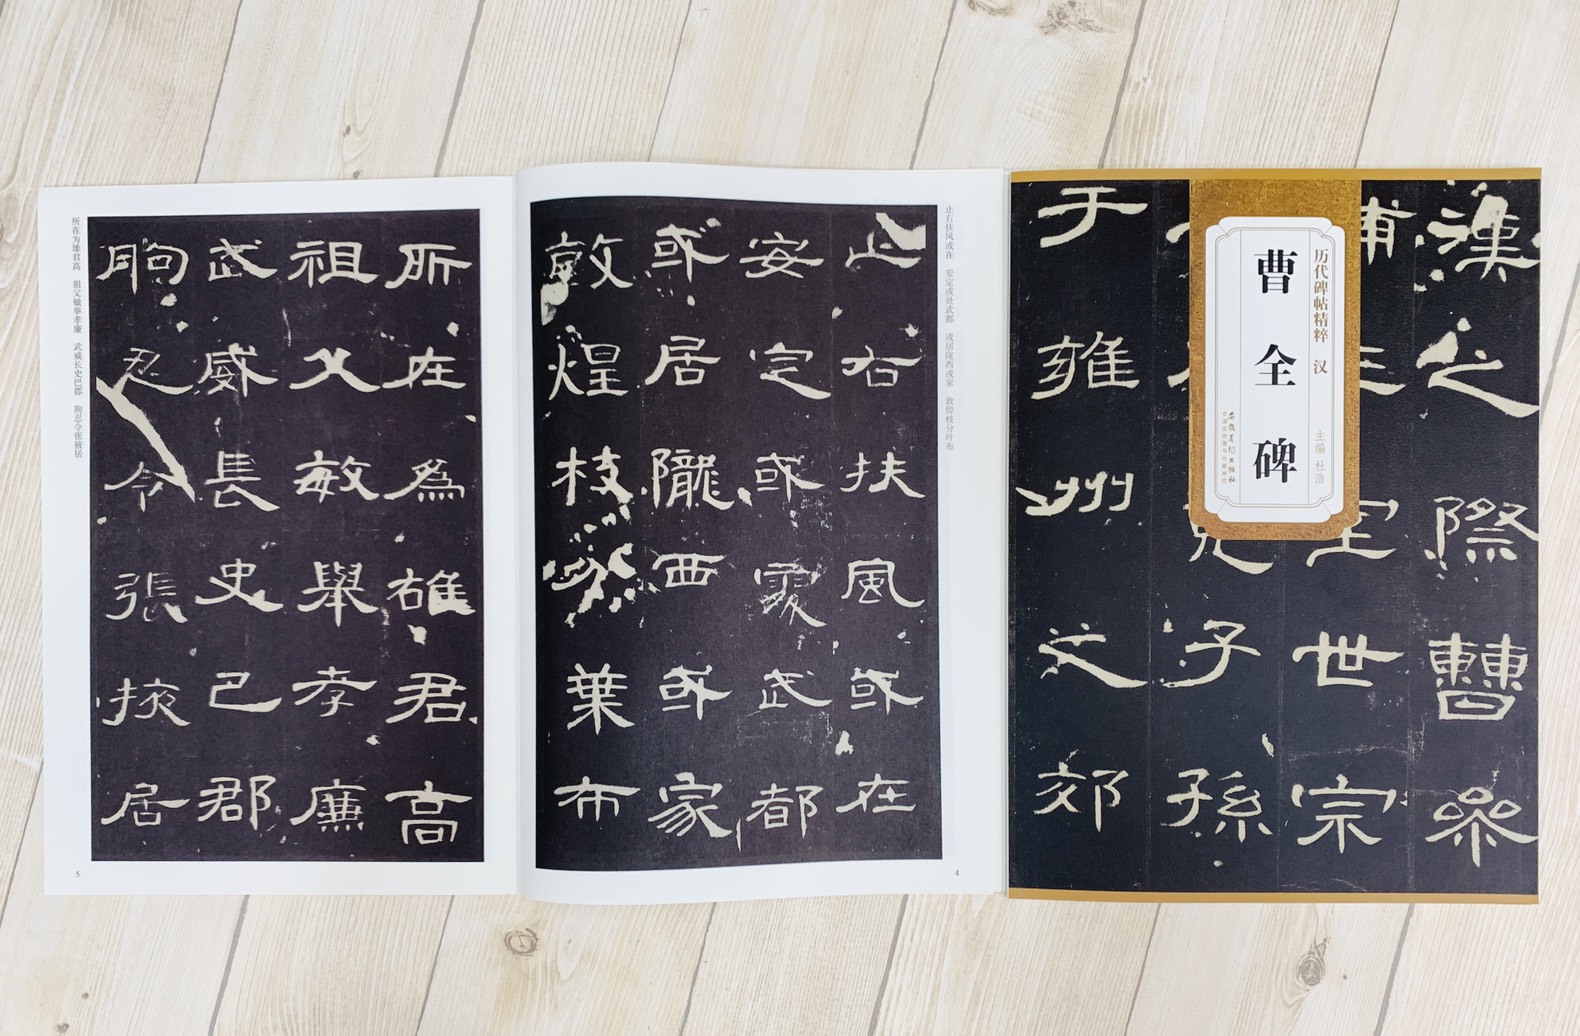 历代碑帖精粹 汉
主编 杜浩
曹全碑
安徽美术出版社
漢之際曹參
世宗
子孫
于雍州之郊
止右扶风或在 安定或处武都 或居陇西或家 敦煌枝分叶布
止右扶風或在
安定或處武都
或居隴西或家
敦煌枝分葉布
4
所在為雄君高
祖父敏舉孝廉
武威長史巴郡
朐忍令張掖居
所在为雄君高 祖父敏举孝廉 武威长史巴郡 朐忍令张掖居
5